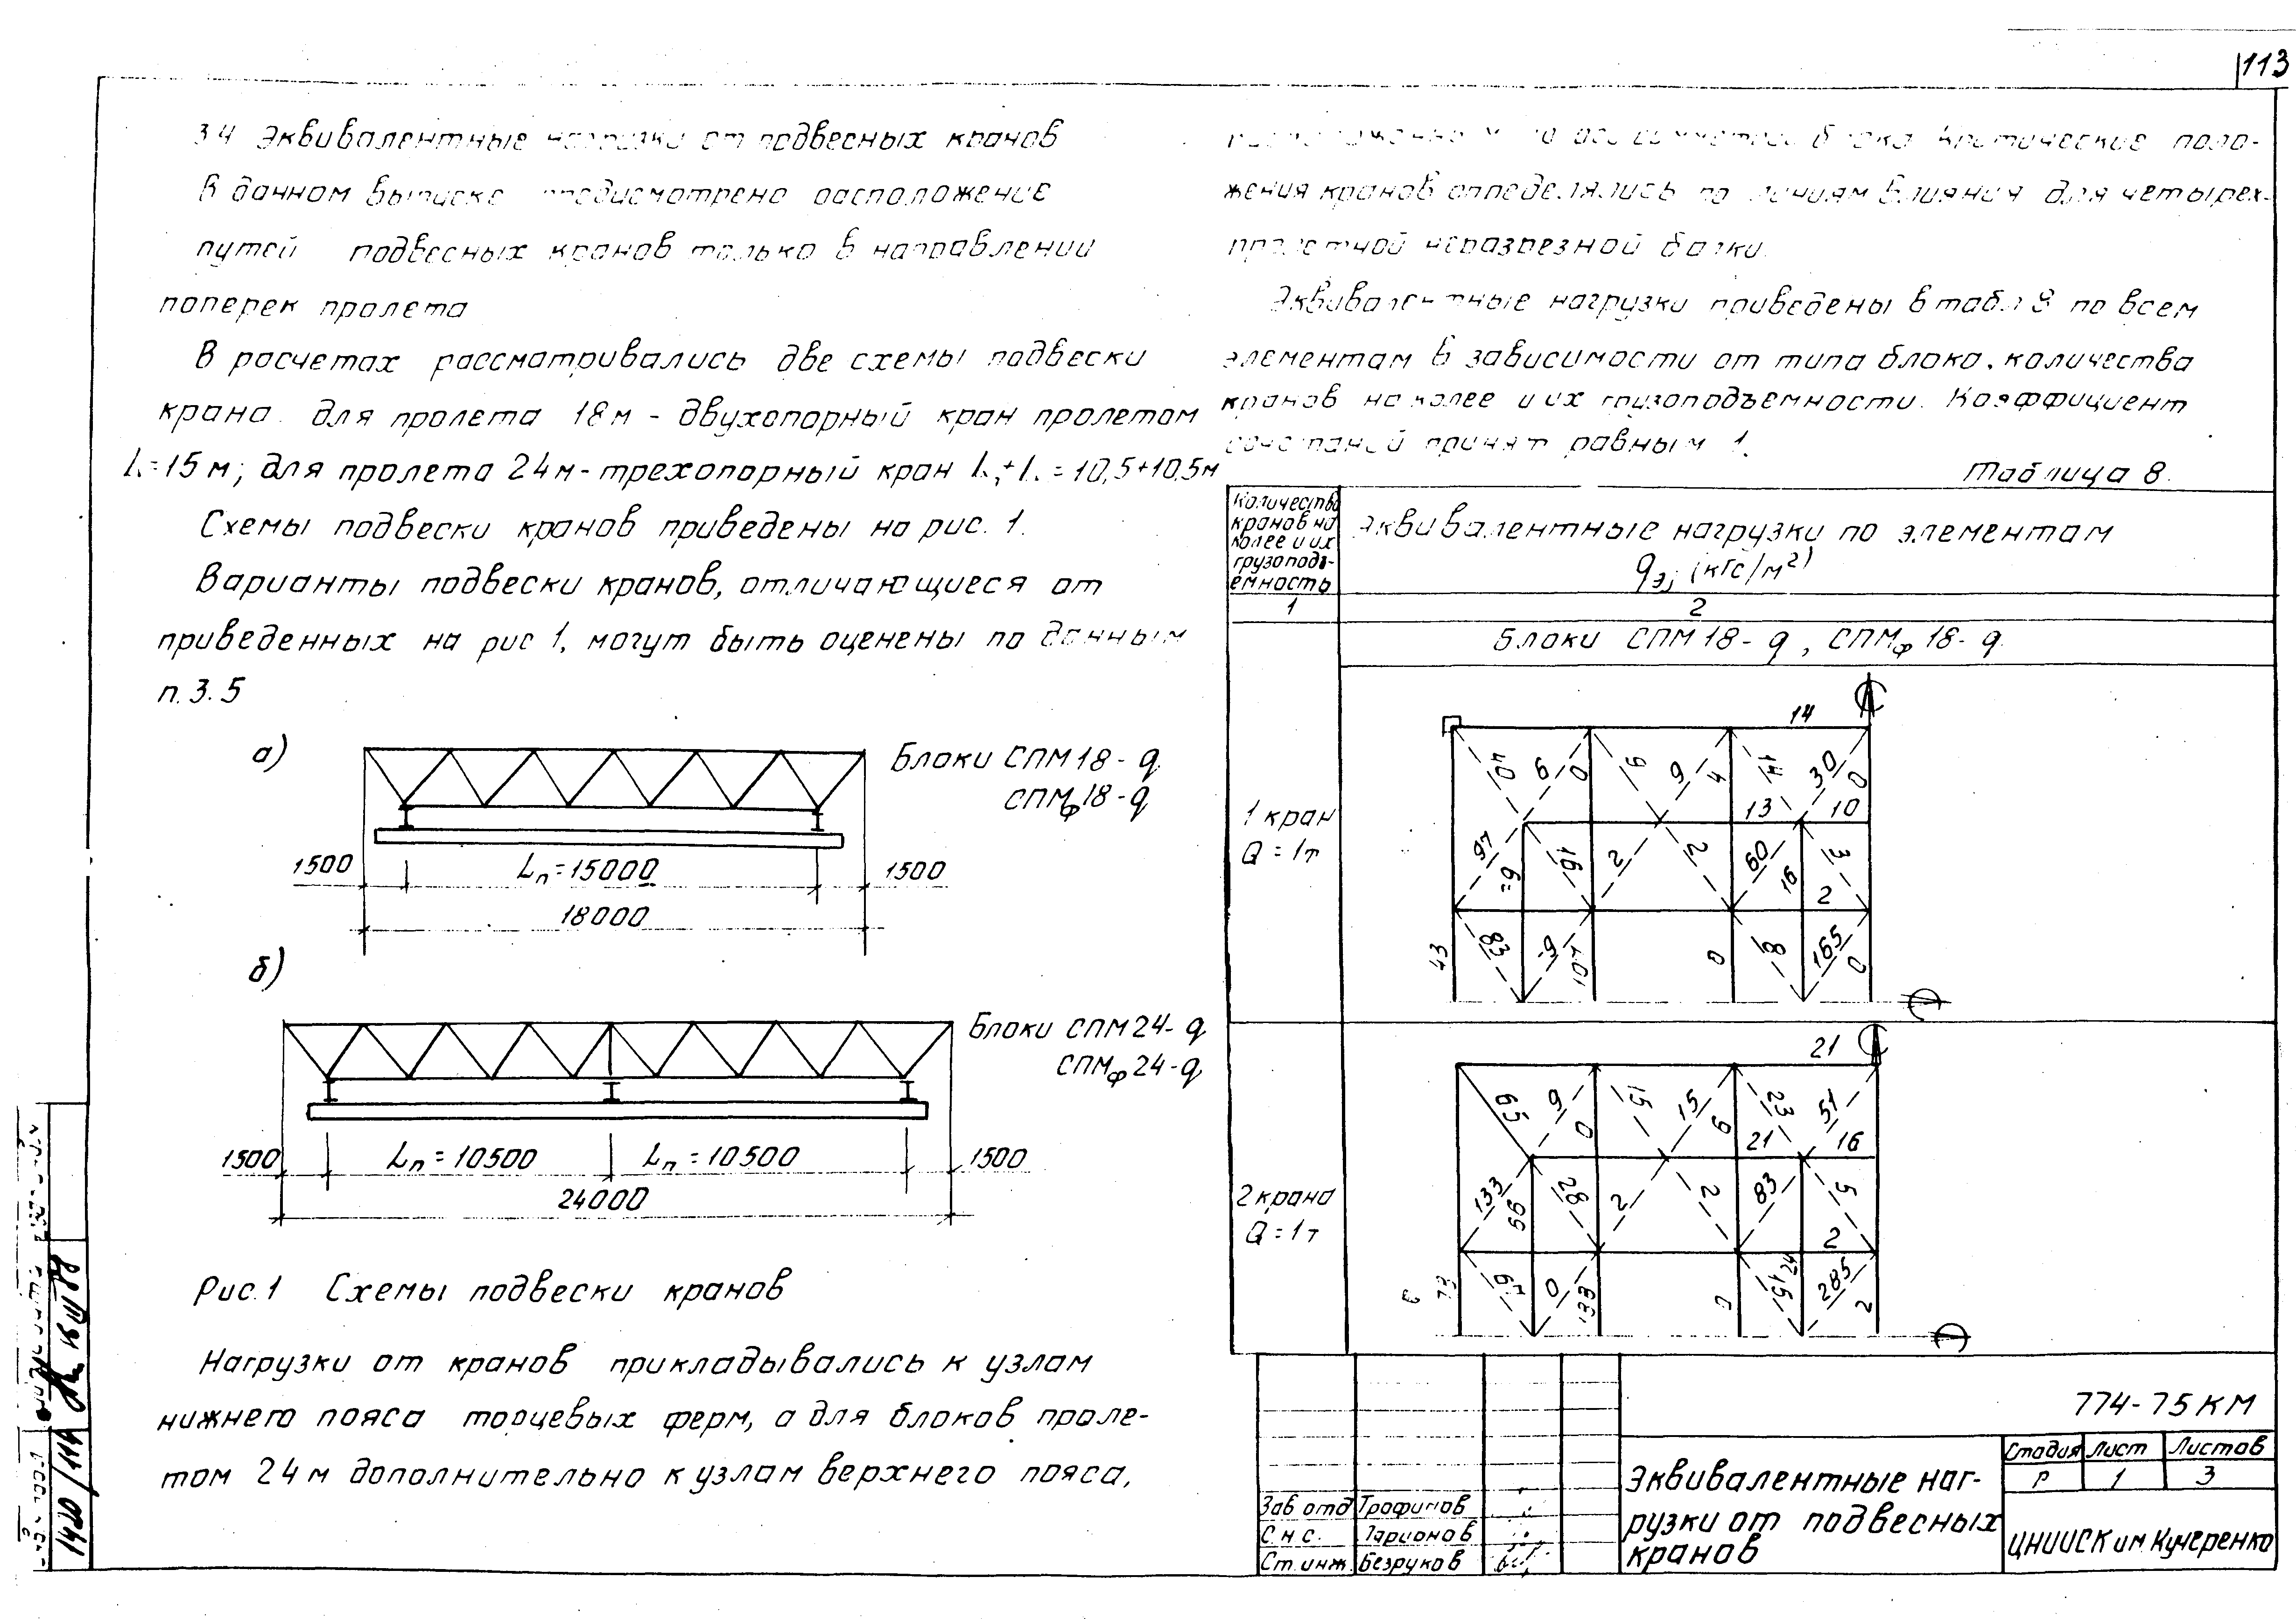 113
3.4 Эквивалентные нагрузки от подвесных кранов
В данном выпуске предусмотрено расположение
путей подвесных кранов только в направлении
поперек пролета
В расчетах рассматривались две схемы подвески
крана. для пролета 18м - двухопорный кран пролетом
L=15м; для пролета 24м - трехопорный кран = 10,5+10,5м
Схемы подвески кранов приведены на рис. 1.
Варианты подвески кранов, отличающиеся от
приведенных на рис 1, могут быть оценены по данным
п. 3.5
а)
Блоки СПМ18-q
СПМф18-q
1500
Lп=15000
1500
18000
б)
Блоки СПМ24-q
СПМф24-q
1500
Lп=10500
Lп=10500
1500
24000
Рис.1 Схемы подвески кранов
Нагрузки от кранов прикладывались к узлам
нижнего пояса торцевых ферм, а для блоков проле-
том 24м дополнительно к узлам верхнего пояса,
блока Критические поло-
жения кранов определялись по линиям влияния для четырех-
пролетной неразрезной балки.
Эквивалентные нагрузки приведены в табл 8 по всем
элементам в зависимости от типа блока, количества
кранов на колее и их грузоподъемности. Коэффициент
сочетаний принят равным 1.
Таблица 8.
Количество
кранов на
колее и их
грузоподъ-
емность
Эквивалентные нагрузки по элементам
qэj (кгс/м²)
1
2
Блоки СПМ18-q, СПМф18-q
1 кран
Q=1т
14
40 6 0 9 9 4 14 30 0
13 10
97 16 2 2 60 16 3
2
43 83 -9 107 0 8 165 0
2 крана
Q=1т
21
65 9 0 15 15 9 23 51
21 16
133 56 28 2 2 83 5
2
73 0 133 0 15 24 285 2
774-75КМ
Стадия Лист Листов
Р 1 3
Эквивалентные наг-
рузки от подвесных
кранов
ЦНИИСК им. Кучеренко
Зав отд Трофимов
С.н.с. Ларионов
Ст.инж. Безруков
1420/114